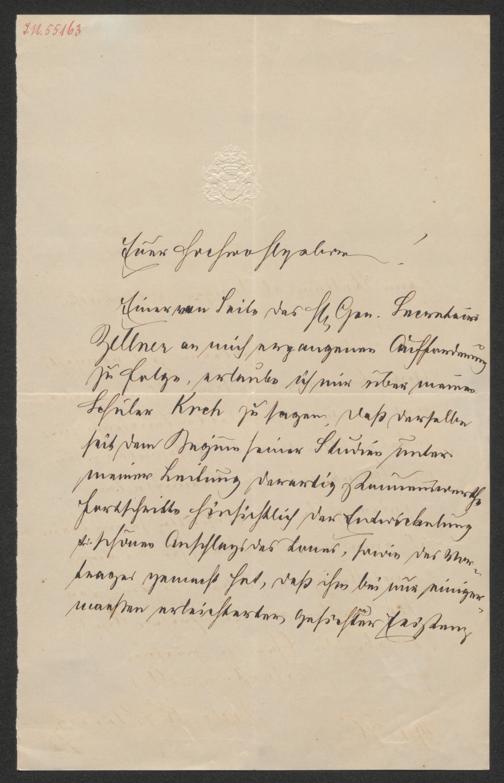 I.N. 55163
Euer Hochwohlgeboren !
Einer von Seite des H. Gen. Secretairs
Zellner an mich ergangenen Aufforderung
zu folge, erlaube ich mir über meinen
Schüler Koch zu sagen, daß derselbe
seit dem Beginn seiner Studien unter
meiner Leitung derartig staunenswerthe
Fortschritte hinsichtlich der Entwickelung
schönen Anschlags des Tones, sowie des Vor-
trages gemacht hat, daß ihm bei nur einiger-
maaßen erleichterter Existenz